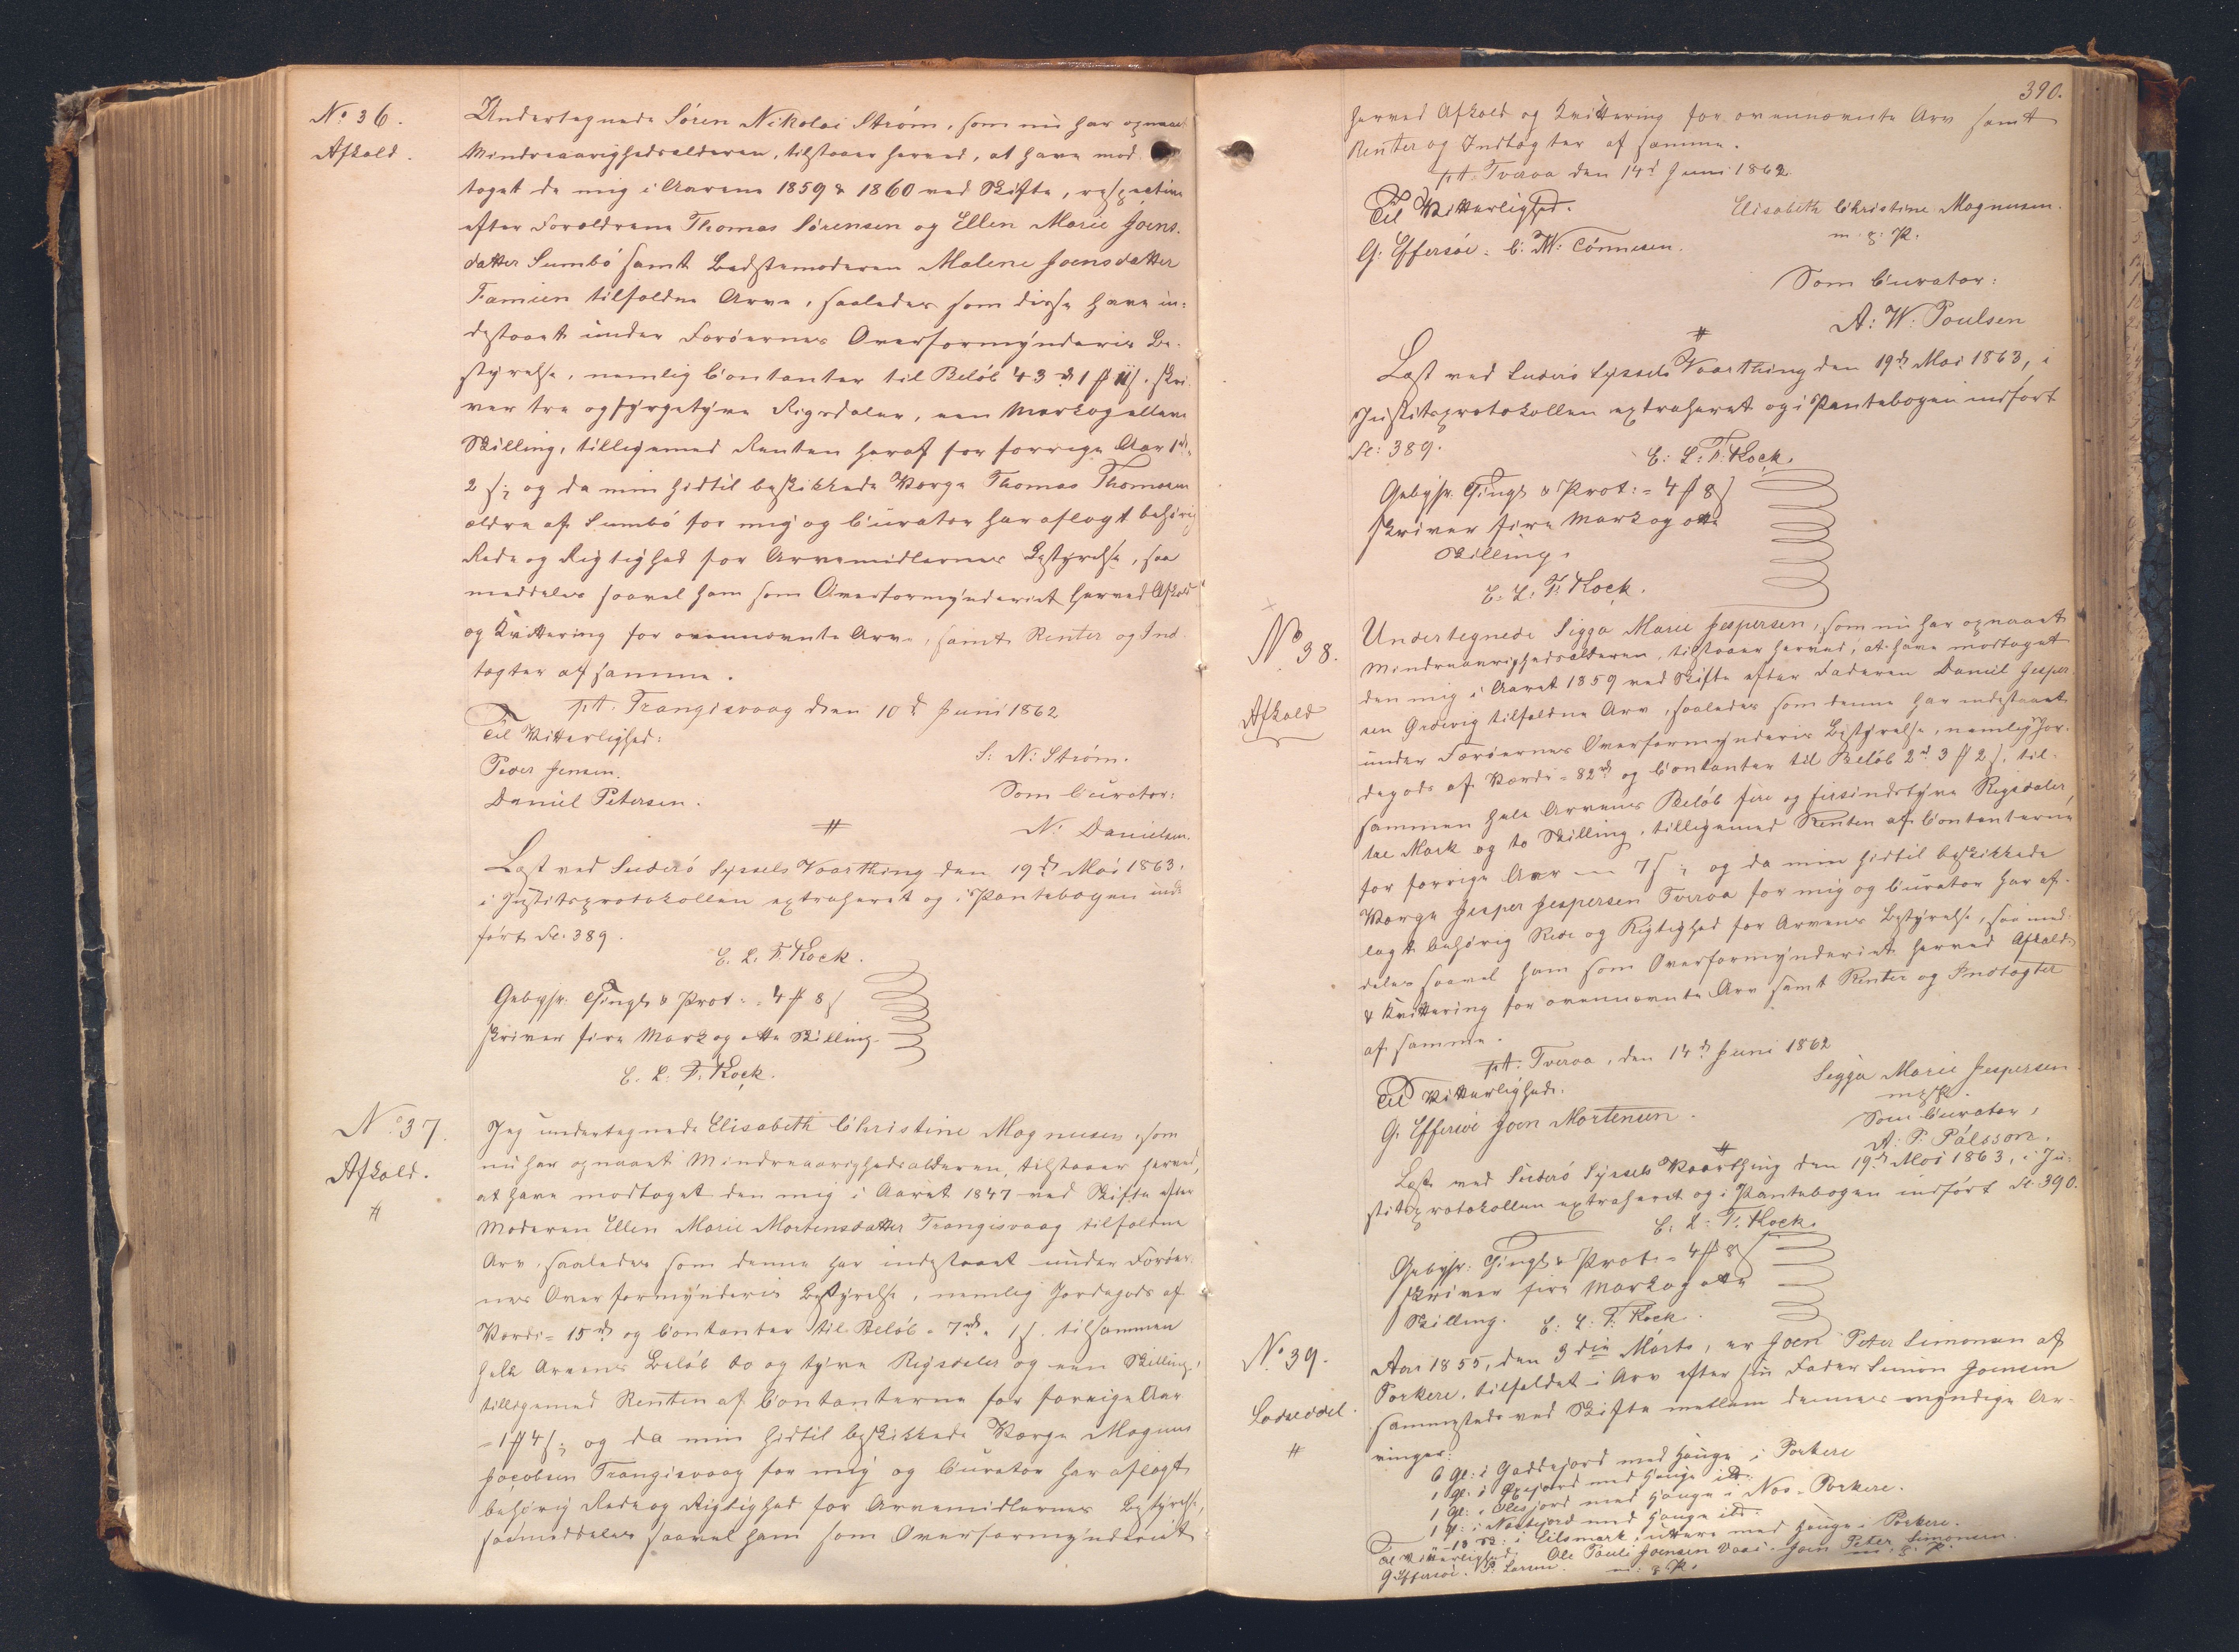 No 36.
Afkald.
Undertegnede Sören Nikolai Ström, som nu har opnaaet
Mindreaarighedsalderen, tilstaaer herved, at have mod
taget de mig i Aarene 1859 & 1860 ved Skifte, respective
efter Forældrene Thomas Sörensen og Ellen Marie Joens-
datter Sumbö samt Bedstemoderen Malene Joensdatter
Famien tilfaldne Arve, saaledes som disse have in-
destaaet under Færöernes Overformynderis Be-
styrelse, nemlig Contanter til Belöb 43 rd 1 # 11 s. skri-
ver tre og fyrgetyve Rigsdaler, een Mark og elleve
Skilling, tilligemed Renten heraf for forrige Aar 1 rd
2 s; og da min hidtil beskikkede Værge Thomas Thomasen
ældre af Sumbö for mig og Curator har aflagt behörig
Rede og Rigtighed for Arvemidlernes Bestyrelse, saa
meddeles saavel ham som Overformynderiet herved Afkald
og Kvittering for ovennævnte Arve, samt Renter og Ind
tægter af samme.
pt. Trangisvaag den 10d Juni 1862
Til Vitterlighed:
S: N: Ström.
Peder Jensen.
Som Curator:
Daniel Petersen.
N: Danielsen.
#
Læst ved Suderö Syssels Vaarthing den 19d Mai 1863.
i Justitsprotokollen extraheret og i Pantebogen ind-
fört Fol. 389.
E. L. F. Kock.
Gebyhr. Tingl & Prot: = 4 # 8 s
skriver fire Mark og otte Skilling.
E. L: F. Kock.
No 37.
Afkald.
#
Jeg undertegnede Elisabeth Christine Magnusen, som
nu har opnaaet Mindreaarighedsalderen, tilstaaer herved,
at have modtaget den mig i Aaret 1847 ved Skifte efter
Moderen Ellen Marie Mortensdatter Trangisvaag tilfaldne
Arv, saaledes som denne har indestaaet under Færöer-
nes Overformynderis Bestyrelse, nemlig Jordegods af
Værdi = 15 rd og Contanter til Belöb = 7 rd = 1 s. tilsammen
hele Arvens Belöb to og tyve Rigsdaler og een Skilling,
tilligemed Renten af Contanterne for forrige Aar
= 1 # 4 s; og da min hidtil beskikkede Værge Magnus
Jacobsen Trangisvaag for mig og Curator har aflagt
behörig Rede og Rigtighed for Arvemidlernes Bestyrelse,
saa meddeles saavel ham som Overformynderiet
390.
herved Afkald og Kvittering for ovennævnte Arv samt
Renter og Indtægter af samme.
pt. Tveraa den 14d Juni 1862.
Til Vitterlighed.
Elisabeth Christine Magnusen.
m. g: P.
G: Effersöe. C: M: Tönnesen.
Som Curator:
A: W: Poulsen
#
Læst ved Suderö Syssels Vaarthing den 19d Mai 1863, i
Justitsprotokollen extraheret og i Pantebogen indfört
Fol: 389.
E: L: F. Kock.
Gebyhr. Tingl & Prot: = 4 # 8 s
skriver fire Mark og otte
Skilling.
E. L. F. Kock.
No 38.
Afkald
Undertegnede Sigga Marie Jespersen, som nu har opnaaet
Mindreaarighedsalderen, tilstaaer herved, at have modtaget
den mig i Aaret 1859 ved Skifte efter Faderen Daniel Jesper-
sen Grdevig tilfaldne Arv, saaledes som denne har indestaaet
under Færöernes Overformynderis Bestyrelse, nemlig Jor-
degods af Værdi = 82 rd og Contanter til Belöb 2 rd 3 # 2 s, til-
sammen hele Arvens Belöb fire og firsindstyve Rigsdaler
tre Mark og to Skilling, tilligemed Renten af Contanterne
for forrige Aar 7 s; og da min hidtil beskikkede
Værge Jesper Jespersen Tveraa for mig og Curator har af-
lagt behörig Rede og Rigtighed for Arvens Bestyrelse, saa med
deles saavel ham som Overformynderiet herved Afkald
& Kvittering for ovennævnte Arv samt Renter og Indtægter
af samme.
pt. Tveraa, den 14d Juni 1862
Til Vitterlighed.
Sigga Marie Jespersen
m. g. P.
G. Effersöe Joen Mortensen.
Som Curator,
A: P. Pálsson.
#
Læst ved Suderö Syssels Vaarthing den 19d Mai 1863, i Ju-
stitsprotokollen extraheret og i Pantebogen indfört Fol. 390.
E. L: F. Kock.
Gebyhr. Tingl & Prot. = 4 # 8 s
skriver fire Mark og otte
Skilling. E: L: F. Kock.
No 39.
Lodseddel.
#
Aar 1855, den 3die Marts, er Joen Peter Simonsen af
Porkere, tilfaldet i Arv efter sin Fader Simon Joensen
sammesteds ved Skifte mellem dennes myndige Ar-
vinger:
6 gl: i Gaddejord med Hauge i Porkere
1 gl. i jord med Hauge ibd.
1 gl: i Olesjord med Hauge i Nes-Porkere.
1 gl: i jord med Hauge ibd.
" 13 sk: i Eilsmark, med Hauge i Porkere.
Til Vitterlighed. Ole Pauli Joensen Vaai. Joen Peter Simonsen
G. Effersöe. P. Larsen. m. g. P. m. g. P.